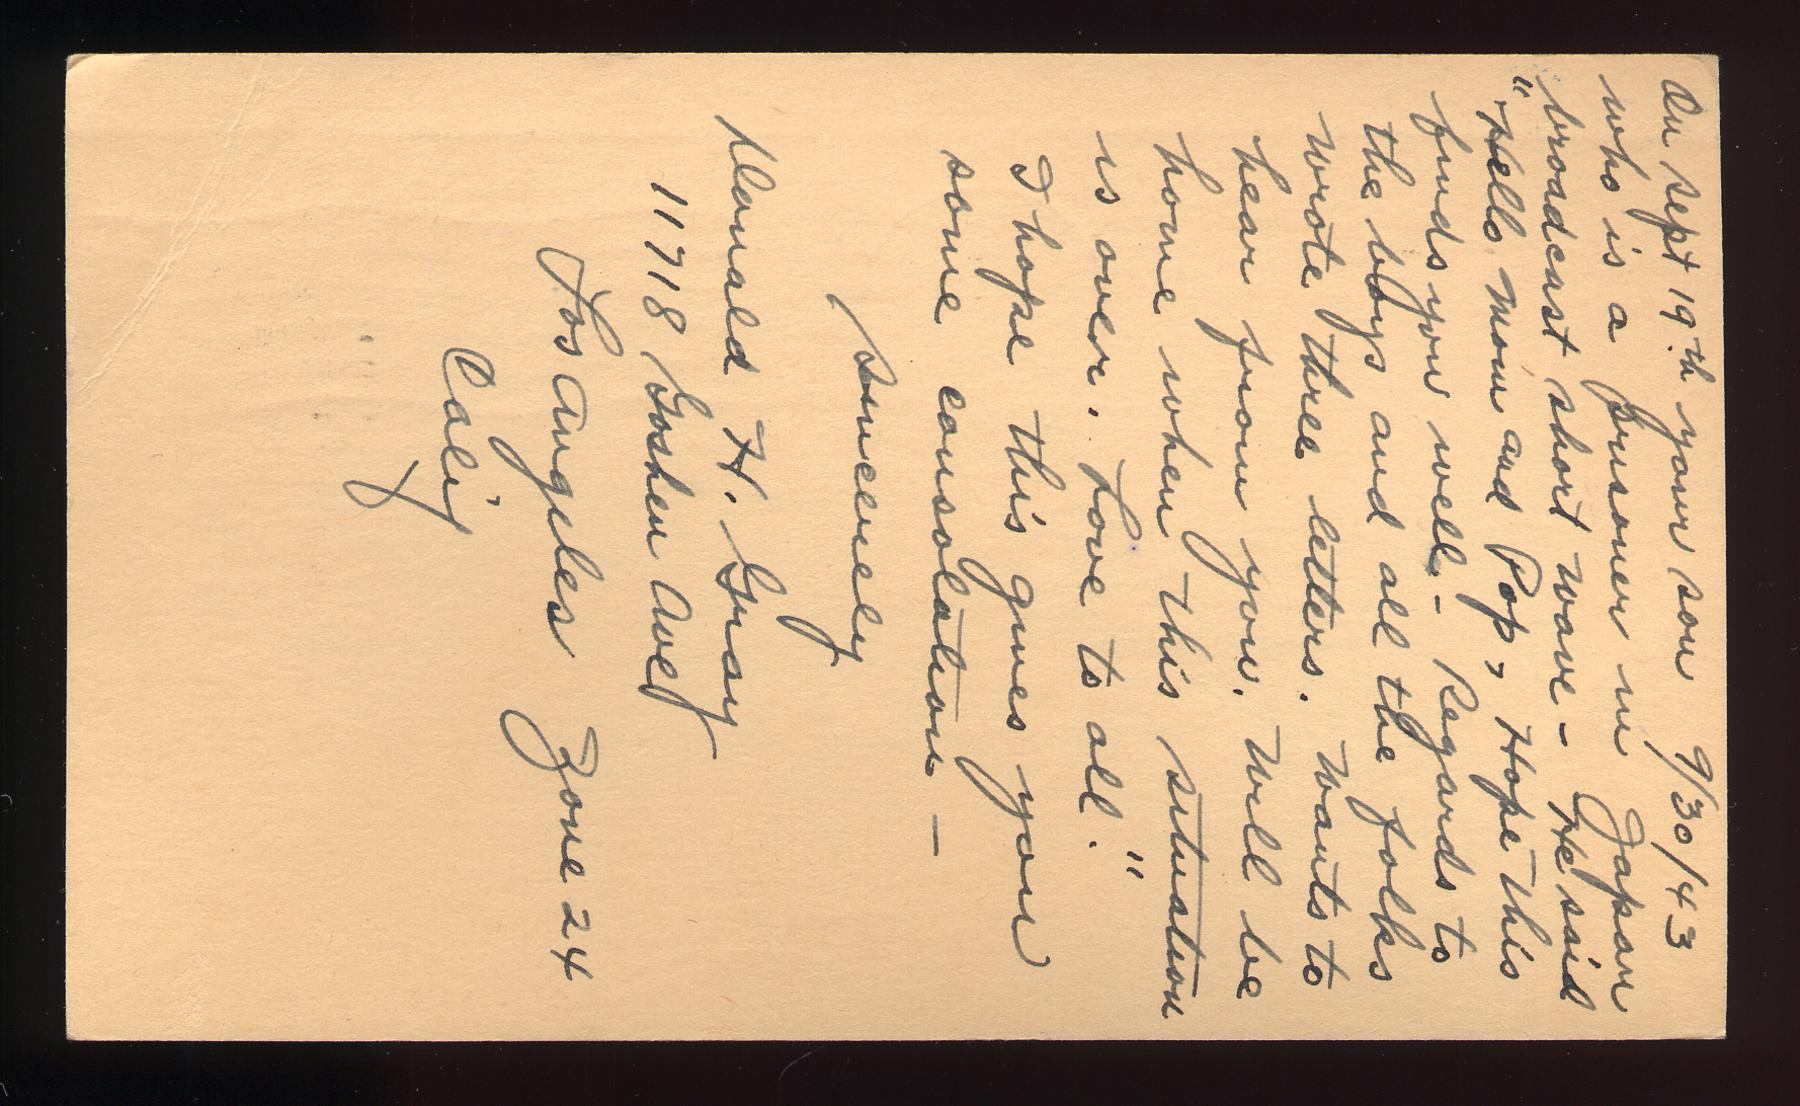 9/30/43
On Sept 19th your son
who is a prisoner in Japan
broadcast short wave - He said
"Hello Mom and Pop, Hope this
finds you well - Regards to
the boys and all the folks
wrote three letters. Wants to
hear from you. Will be
home when this situation
is over. Love to all."
I hope this gives you
some consolation -
Sincerely
Donald H. Gray
11718 Goshen Ave
Los Angeles Zone 24
Calif